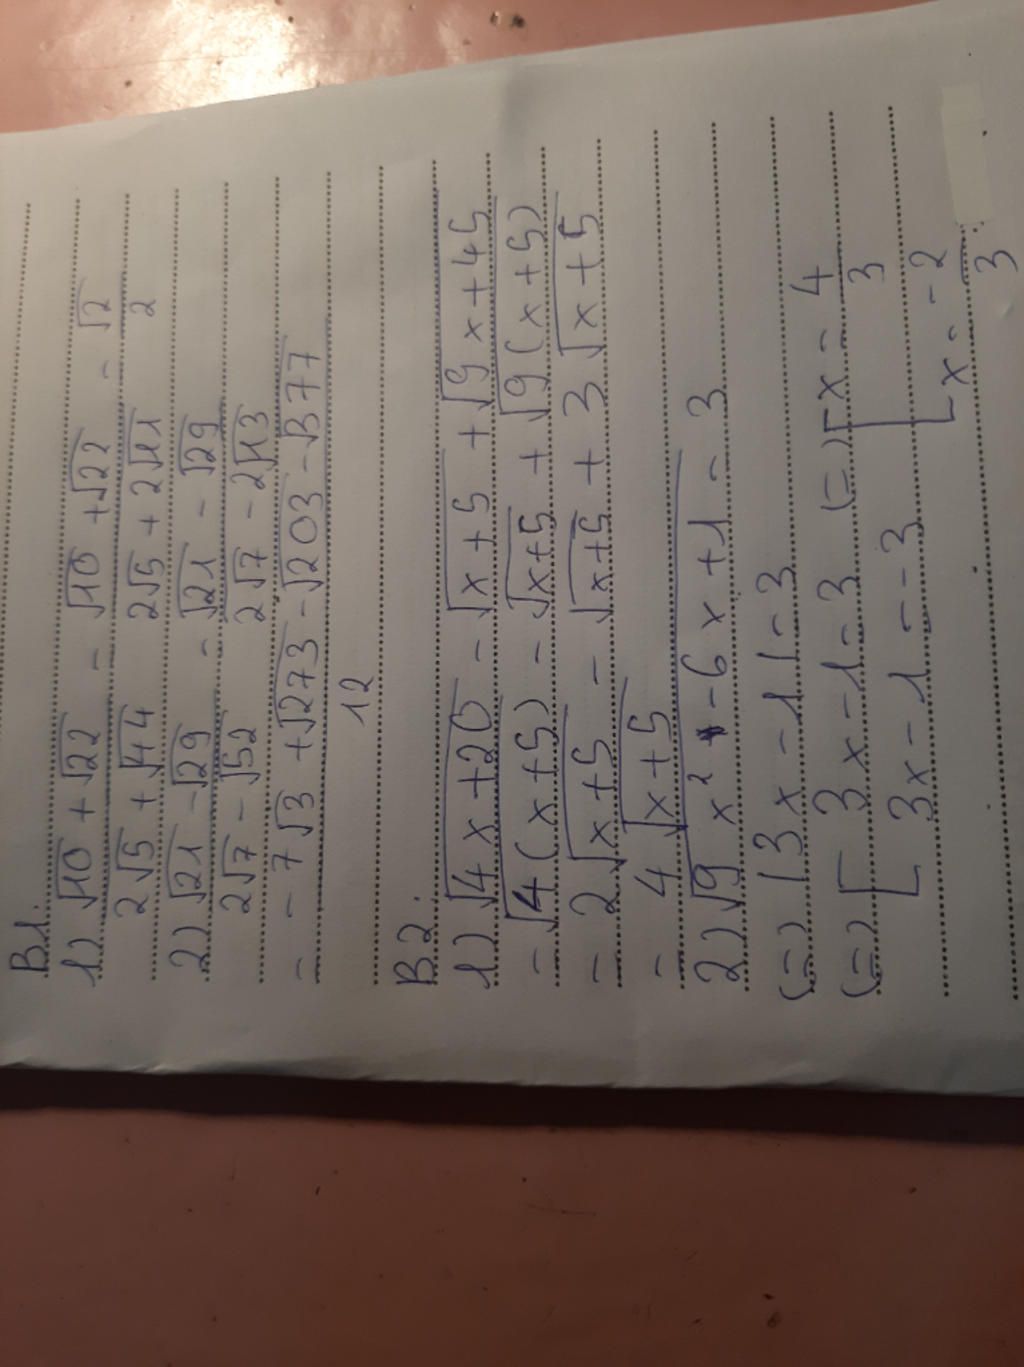 B1.
1) (√10 + √22)/(2√5 + √44) = (√10 + √22)/(2√5 + 2√11) = √2/2
2) (√21 - √29)/(2√7 - √52) = (√21 - √29)/(2√7 - 2√13)
= (-7√3 + √273 - √203 - √377)/12
B2.
1) √4x+20 - √x+5 + √9x+45
= √4(x+5) - √x+5 + √9(x+5)
= 2√x+5 - √x+5 + 3√x+5
= 4√x+5
2) √9x² - 6x + 1 = 3
(=) |3x - 1| = 3
(=) [ 3x - 1 = 3 (=) [ x = 4/3
[ 3x - 1 = -3 [ x = -2/3